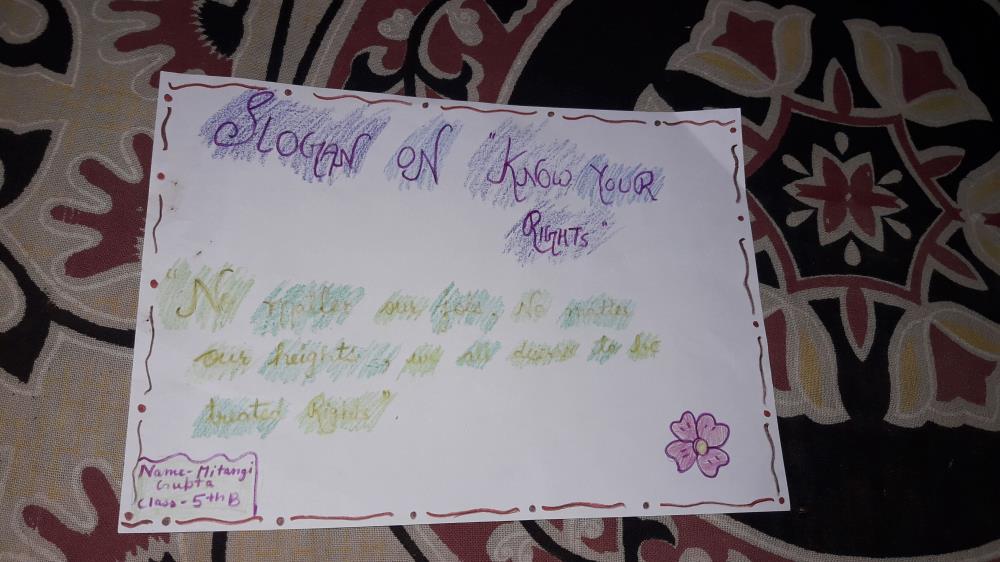 Slogan on "Know Your
Rights"
"No matter our jobs, No matter
our heights, we all deserve to be
treated Rights"
Name - Mitangi
Gupta
Class - 5th B